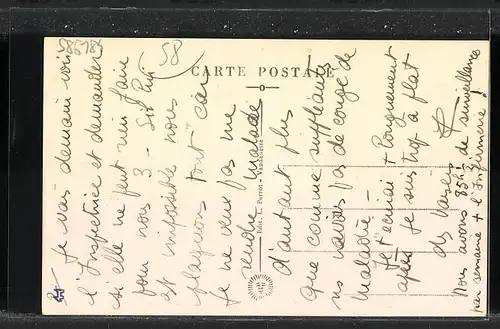 586784
58
CARTE POSTALE
Edit. L. Perrot - Vandenesse
Je vais demain voir
l'Inspectrice et demander
si elle ne peut rien faire
pour nous 3 -
est impossible nous
plaquons tout car
je ne veux pas me
rendre malade
d'autant plus
que comme suppléants
ns n'avons pas de congé de
maladie -
Je t'écrirai + longuement
après je suis trop à plat
Nous avons 85h1 de surveillance
par semaine + l'Infirmerie!